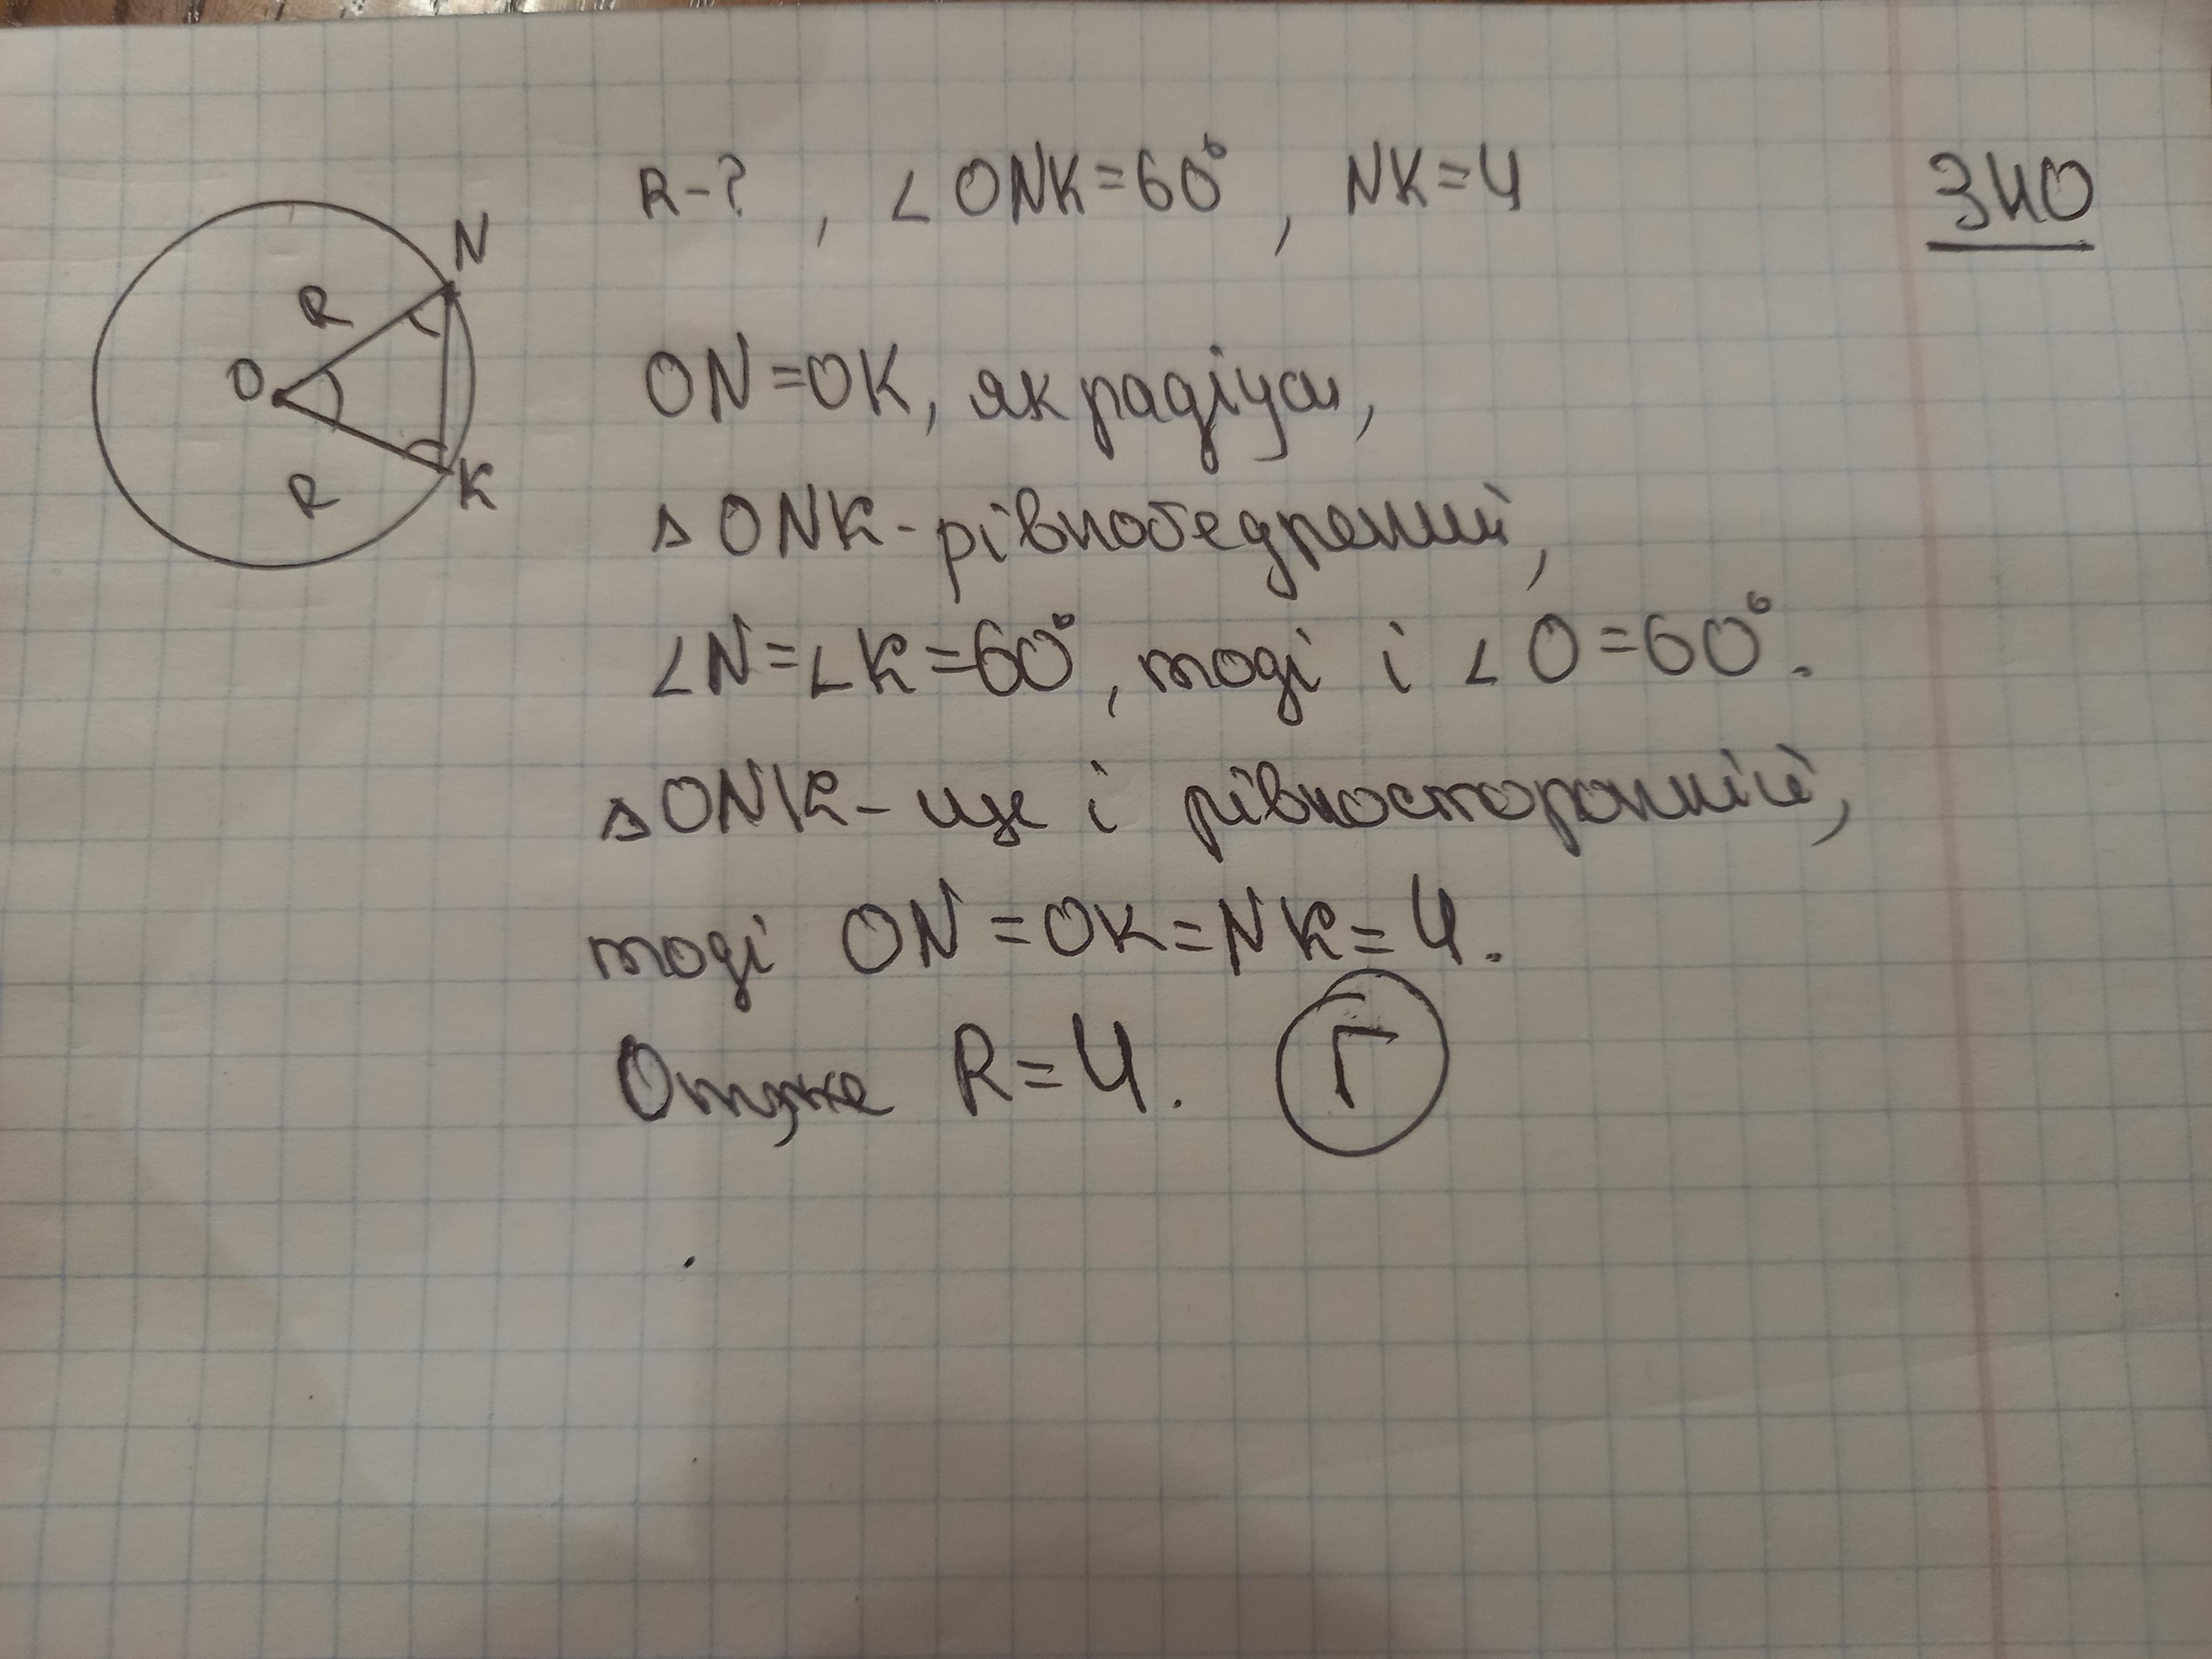 R-?, ∠ONK=60°, NK=4
ЗНО
N
R
O
R
K
ON=OK, як радіуси,
△ONK-рівнобедрений,
∠N=∠K=60°, тоді і ∠O=60°.
△ONK- ще і рівносторонній,
тоді ON=OK=NK=4.
Отже R=4. Г